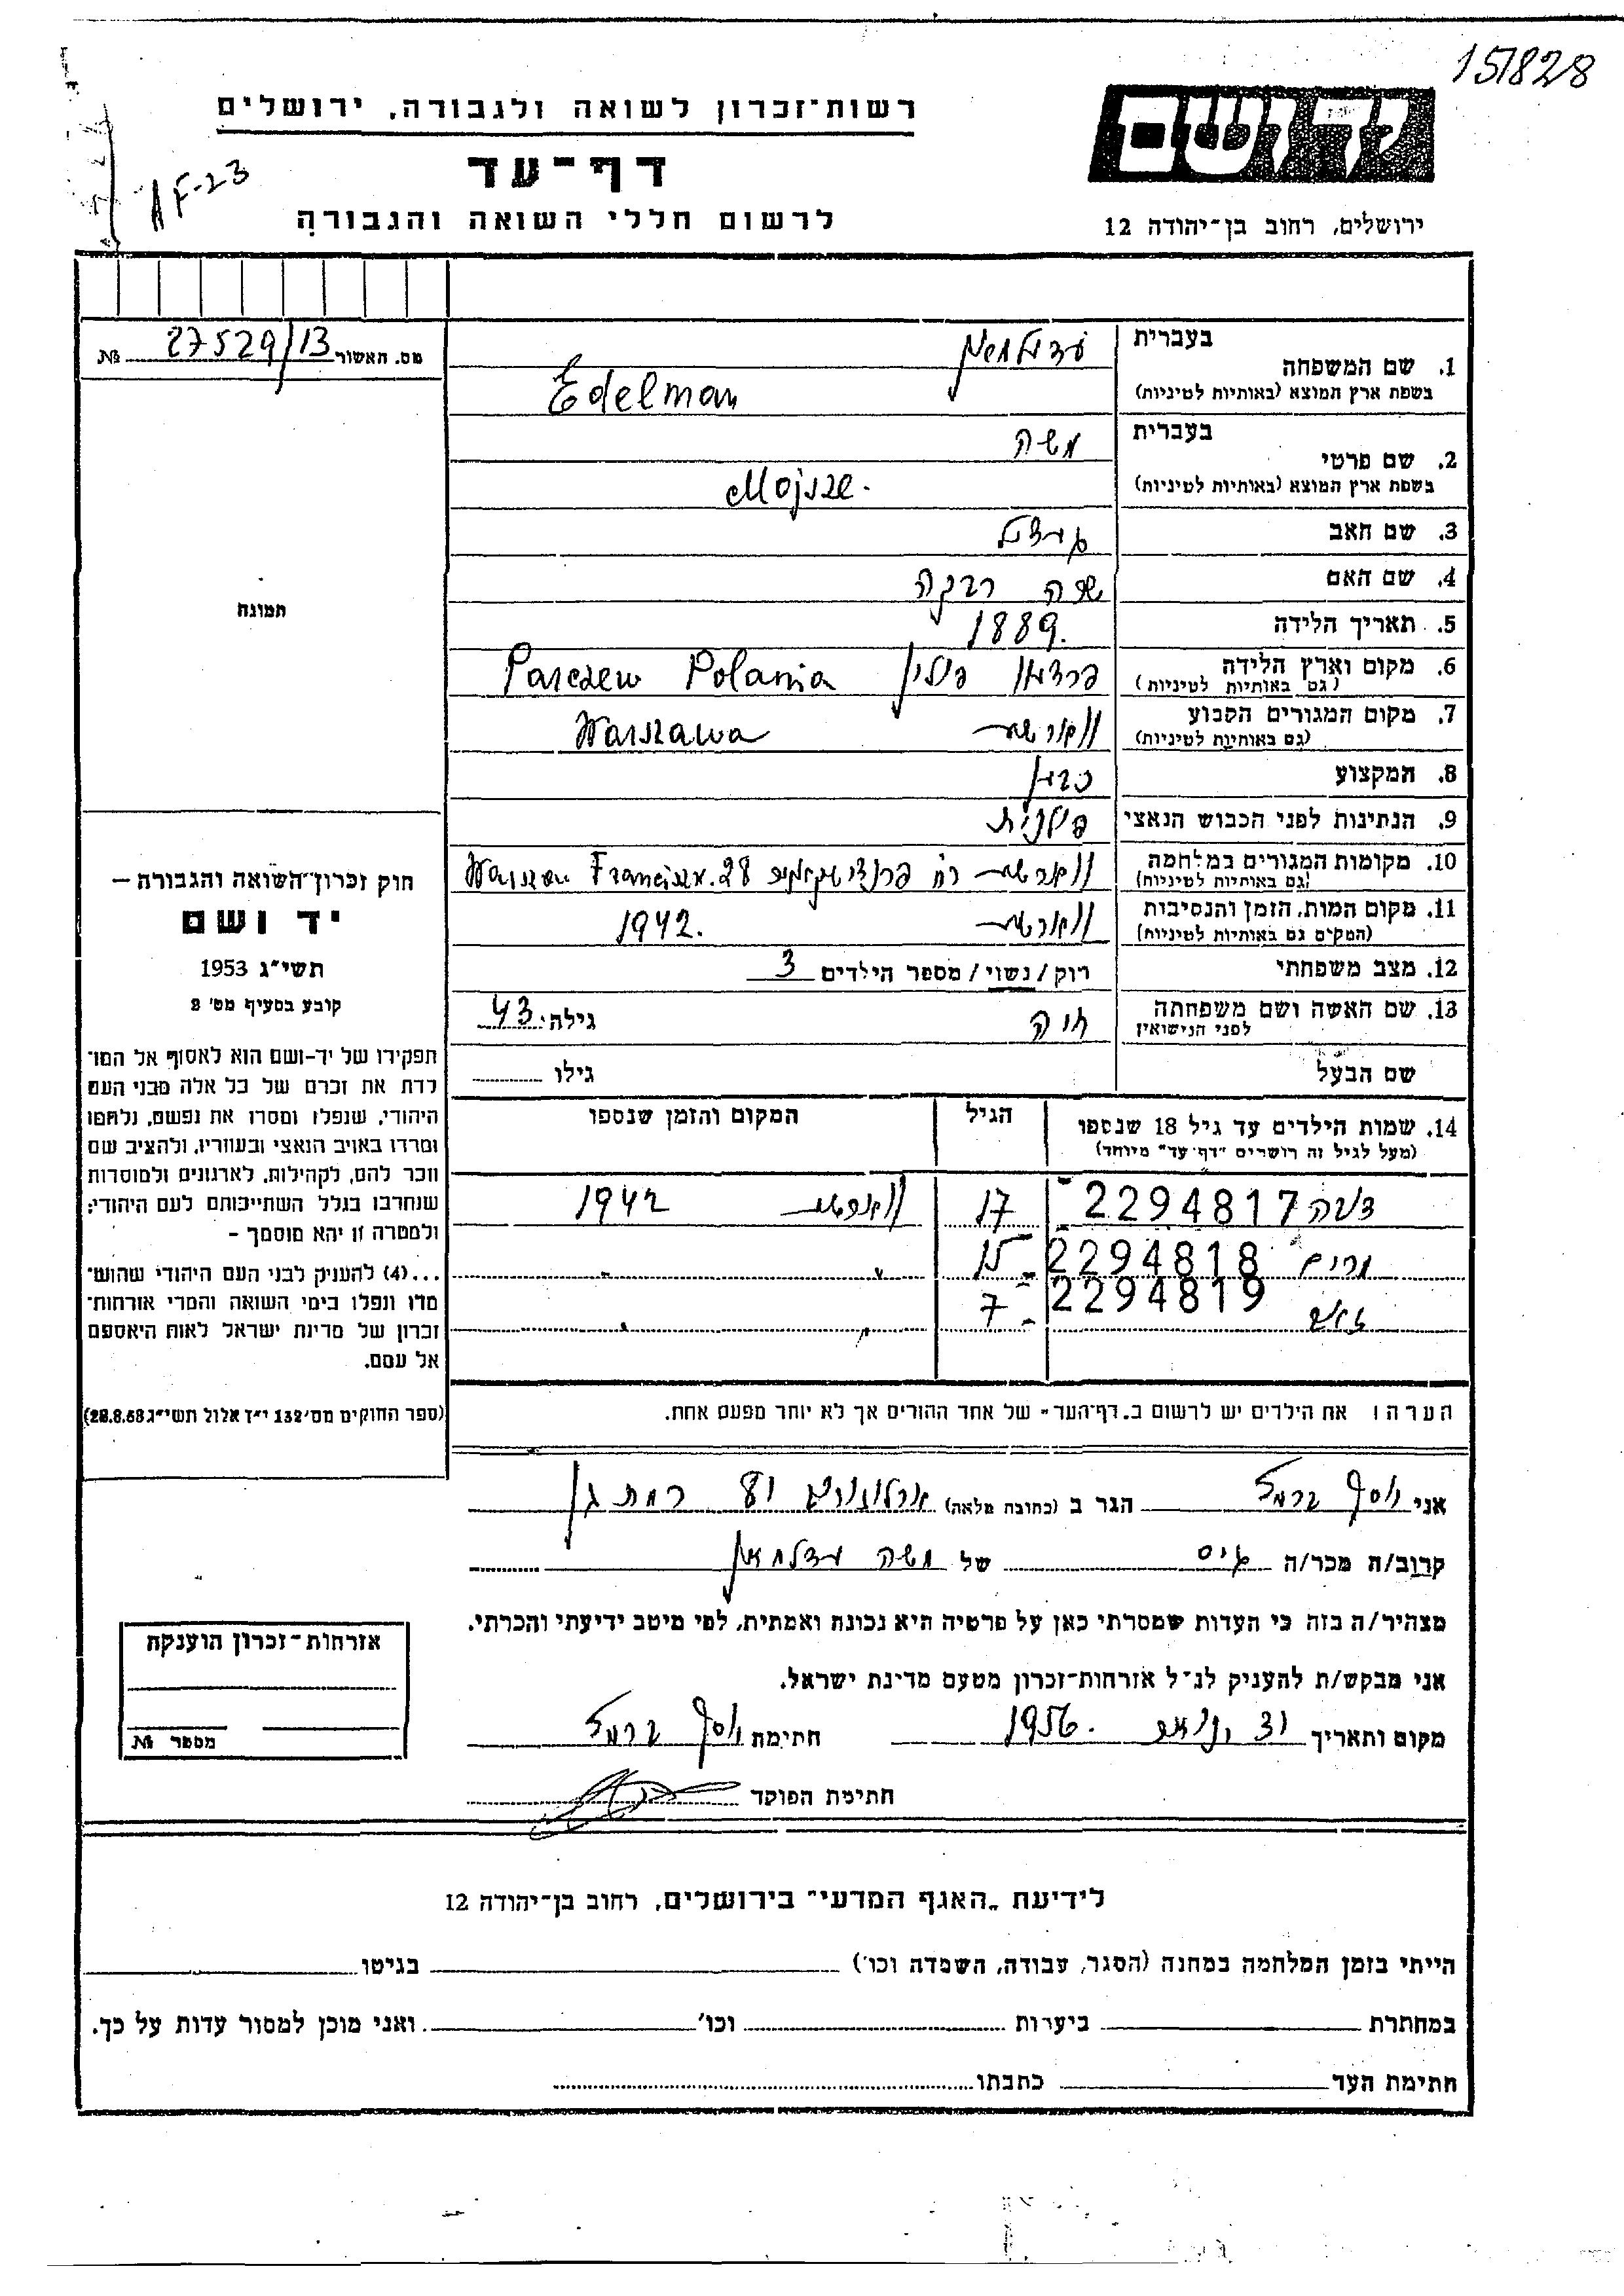 151828
יד ושם
ירושלים, רחוב בן־יהודה 12
רשות־זכרון לשואה ולגבורה, ירושלים
דף־עד
לרשום חללי השואה והגבורה
A F-23
מס. האשור 27529/13 №
תמונה
1. שם המשפחה
בעברית עדלמאן
בשפת ארץ המוצא (באותיות לטיניות) Edelman
2. שם פרטי
בעברית משה
בשפת ארץ המוצא (באותיות לטיניות) Mojsze.
3. שם האב
4. שם האם שרה רבקה
5. תאריך הלידה 1889.
6. מקום וארץ הלידה פרצאוו פולין Parczew Polania
(גם באותיות לטיניות)
7. מקום המגורים הקבוע ווארשא Warszawa
(גם באותיות לטיניות)
8. המקצוע
9. הנתינות לפני הכבוש הנאצי פולנית
10. מקומות המגורים במלחמה ווארשא רח׳ Franciszk. 28
(גם באותיות לטיניות)
11. מקום המות, הזמן והנסיבות ווארשא 1942.
(המקום גם באותיות לטיניות)
12. מצב משפחתי רוק / נשוי / מספר הילדים 3
13. שם האשה ושם משפחתה חוה גילה: 43
לפני הנישואין
שם הבעל גילו
14. שמות הילדים עד גיל 18 שנספו הגיל המקום והזמן שנספו
(מעל לגיל זה רושמים "דף־עד" מיוחד)
2294817 17 ווארשא 1942
מרים 2294818 15 " "
2294819 7 " "
הערה: את הילדים יש לרשום ב„דף־העד״ של אחד ההורים אך לא יותר מפעם אחת.
חוק זכרון־השואה והגבורה —
יד ושם
תשי״ג 1953
קובע בסעיף מס׳ 2
תפקידו של יד־ושם הוא לאסוף אל המו־
לדת את זכרם של כל אלה מבני העם
היהודי, שנפלו ומסרו את נפשם, נלחמו
ומרדו באויב הנאצי ובעוזריו, ולהציב שם
וזכר להם, לקהילות, לארגונים ולמוסדות
שנחרבו בגלל השתייכותם לעם היהודי;
ולמטרה זו יהא מוסמך –
...(4) להעניק לבני העם היהודי שהוש־
מדו ונפלו בימי השואה והמרי אזרחות־
זכרון של מדינת ישראל לאות היאספם
אל עמם.
(ספר החוקים מס׳ 132 י״ז אלול תשי״ג 28.8.53)
אני יוסף הגר ב (כתובה מלאה) ארלוזורוב רמת גן
קרוב/ה מכר/ה גיס של משה עדלמאן
מצהיר/ה בזה כי העדות שמסרתי כאן על פרטיה היא נכונה ואמתית, לפי מיטב ידיעתי והכרתי.
אני מבקש/ת להעניק לנ״ל אזרחות־זכרון מטעם מדינת ישראל.
מקום ותאריך 31 ינואר 1956. חתימת יוסף
חתימת הפוקד
אזרחות־זכרון הוענקה
מספר №
לידיעת „האגף המדעי״ בירושלים, רחוב בן־יהודה 12
הייתי בזמן המלחמה במחנה (הסגר, עבודה, השמדה וכו׳) בגיטו
במחתרת ביערות וכו׳ ואני מוכן למסור עדות על כך.
חתימת העד כתבתו